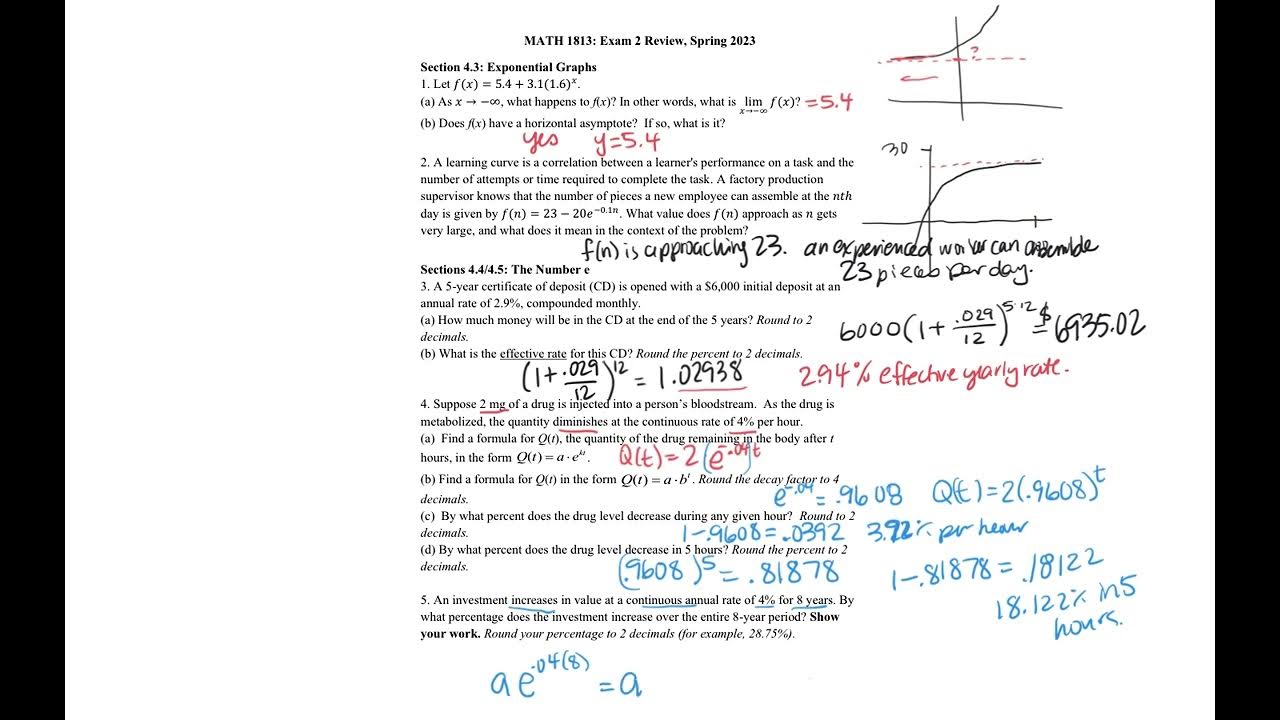 MATH 1813: Exam 2 Review, Spring 2023
Section 4.3: Exponential Graphs
1. Let f(x) = 5.4 + 3.1(1.6)^x.
(a) As x → −∞, what happens to f(x)? In other words, what is lim x→−∞ f(x)? = 5.4
(b) Does f(x) have a horizontal asymptote? If so, what is it?
yes y=5.4
?
30
2. A learning curve is a correlation between a learner's performance on a task and the
number of attempts or time required to complete the task. A factory production
supervisor knows that the number of pieces a new employee can assemble at the nth
day is given by f(n) = 23 − 20e^−0.1n. What value does f(n) approach as n gets
very large, and what does it mean in the context of the problem?
f(n) is approaching 23. an experienced worker can assemble
23 pieces per day.
Sections 4.4/4.5: The Number e
3. A 5-year certificate of deposit (CD) is opened with a $6,000 initial deposit at an
annual rate of 2.9%, compounded monthly.
(a) How much money will be in the CD at the end of the 5 years? Round to 2
decimals.
6000(1+ .029/12)^5·12 = $6935.02
(b) What is the effective rate for this CD? Round the percent to 2 decimals.
(1+ .029/12)^12 = 1.02938 2.94% effective yearly rate.
4. Suppose 2 mg of a drug is injected into a person's bloodstream. As the drug is
metabolized, the quantity diminishes at the continuous rate of 4% per hour.
(a) Find a formula for Q(t), the quantity of the drug remaining in the body after t
hours, in the form Q(t) = a·e^kt. Q(t) = 2(e^-.04)^t
(b) Find a formula for Q(t) in the form Q(t) = a·b^t. Round the decay factor to 4
decimals. e^-.04 = .9608 Q(t) = 2(.9608)^t
(c) By what percent does the drug level decrease during any given hour? Round to 2
decimals. 1-.9608 = .0392 3.92% per hour
(d) By what percent does the drug level decrease in 5 hours? Round the percent to 2
decimals. (.9608)^5 = .81878 1-.81878 = .18122
18.122% in 5
hours.
5. An investment increases in value at a continuous annual rate of 4% for 8 years. By
what percentage does the investment increase over the entire 8-year period? Show
your work. Round your percentage to 2 decimals (for example, 28.75%).
a e^.04(8) = a